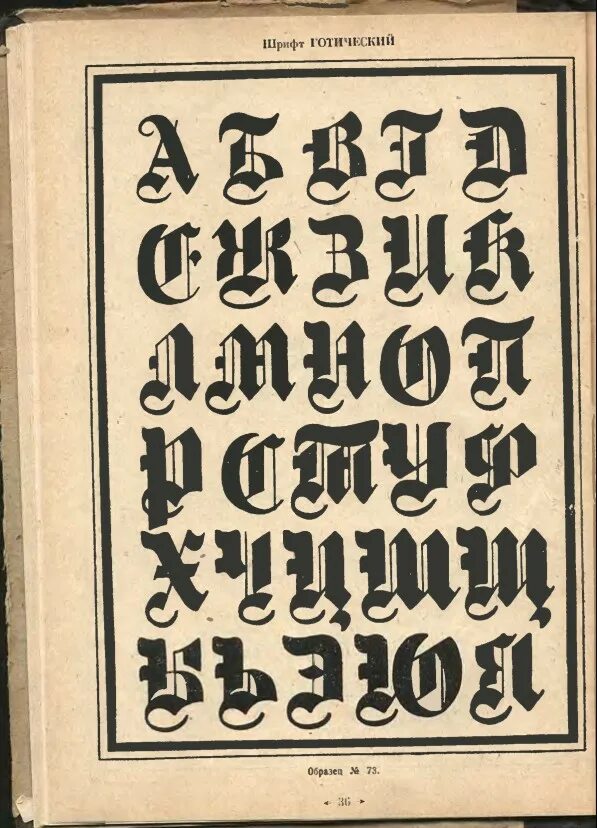 Шрифт ГОТИЧЕСКИЙ
А Б В Г Д
Е Ж З И К
Л М Н О П
Р С Т У Ф
Х Ч Ц Ш Щ
Ы Ь Э Ю Я
Образец № 73.
36